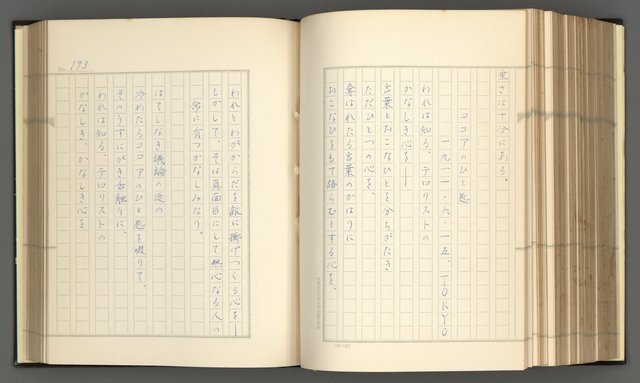 重さは十分にある。
ココアのひと匙
一九一一・六・一五、TOKYO
われは知る、テロリストの
かなしき心を――
言葉とおこなひとを分ちがたき
ただひとつの心を、
奪はれたる言葉のかはりに
おこなひをもて語らむとする心を、
No. 193
われとわがからだを敵に擲げつくる心を――
しかして、そは真面目にして熱心なる人の
常に有つかなしみなり。
はてしなき議論の後の
冷めたるココアのひと匙を啜りて、
そのうすにがき舌触りに、
われは知る、テロリストの
かなしき、かなしき心を